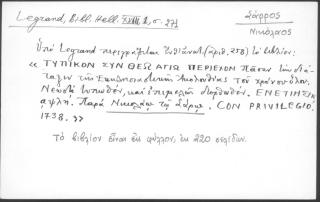 Legrand, Bibl. Hell. XVIII 1, σ. 271
Σάρρος
Νικόλαος
Ὑπὸ Legrand περιγράφεται (ἀριθ. 258) τὸ βιβλίον:
« ΤΥΠΙΚΟΝ ΣΥΝ ΘΕΩ ΑΓΙΩ ΠΕΡΙΕΧΟΝ πᾶσαν τὴν διά-
ταξιν τῆς Ἐκκλησιαστικῆς Ἀκολουθίας τοῦ χρόνου ὅλου.
Νεωστὶ τυπωθὲν, καὶ ἐπιμελῶς διορθωθέν. ΕΝΕΤΙΗΣΙΝ
αψλη. Παρὰ Νικολάῳ τῷ Σάρῳ. CON PRIVILEGIO.
1738. »
Τὸ βιβλίον εἶναι εἰς φύλλον, ἐκ 220 σελίδων.